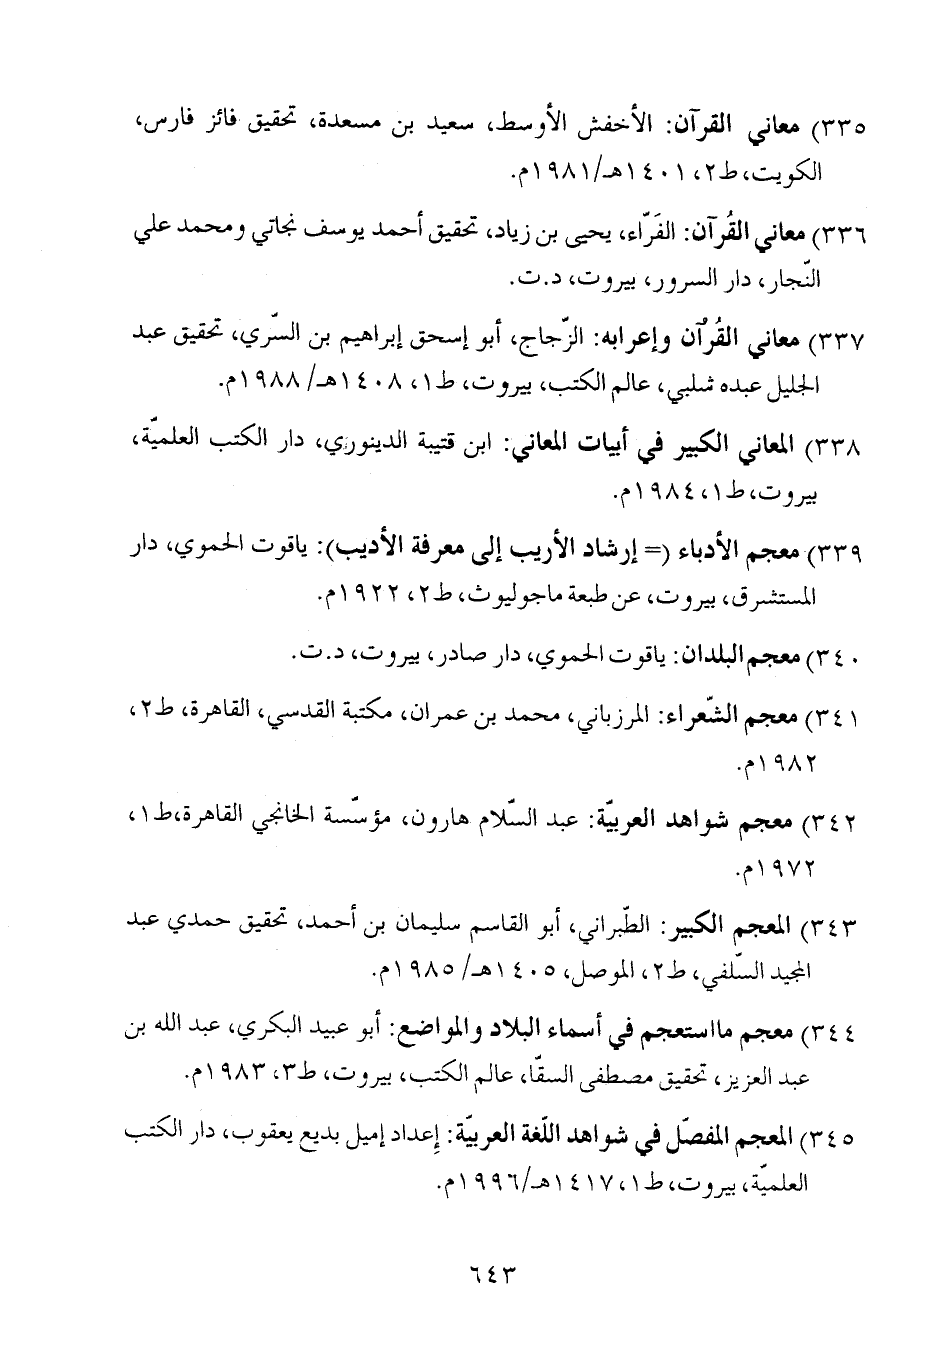 ٣٣٥) معاني القرآن: الأخفش الأوسط، سعيد بن مسعدة، تحقيق فائز فارس،
الكويت، ط٢، ١٤٠١هـ/١٩٨١م.
٣٣٦) معاني القُرآن: الفَرّاء، يحيى بن زياد، تحقيق أحمد يوسف نجاتي ومحمد علي
النّجار، دار السرور، بيروت، د.ت.
٣٣٧) معاني القُرآن وإعرابه: الزّجاج، أبو إسحق إبراهيم بن السّري، تحقيق عبد
الجليل عبده شلبي، عالم الكتب، بيروت، ط١، ١٤٠٨هـ/١٩٨٨م.
٣٣٨) المعاني الكبير في أبيات المعاني: ابن قتيبة الدينوري، دار الكتب العلميّة،
بيروت، ط١، ١٩٨٤م.
٣٣٩) معجم الأدباء (= إرشاد الأريب إلى معرفة الأديب): ياقوت الحموي، دار
المستشرق، بيروت، عن طبعة ماجوليوث، ط٢، ١٩٢٢م.
٣٤٠) معجم البلدان: ياقوت الحموي، دار صادر، بيروت، د.ت.
٣٤١) معجم الشّعراء: المرزباني، محمد بن عمران، مكتبة القدسي، القاهرة، ط٢،
١٩٨٢م.
٣٤٢) معجم شواهد العربيّة: عبد السّلام هارون، مؤسّسة الخانجي القاهرة،ط١،
١٩٧٢م.
٣٤٣) المعجم الكبير: الطّبراني، أبو القاسم سليمان بن أحمد، تحقيق حمدي عبد
المجيد السّلفي، ط٢، الموصل، ١٤٠٥هـ/١٩٨٥م.
٣٤٤) معجم مااستعجم في أسماء البلاد والمواضع: أبو عبيد البكري، عبد الله بن
عبد العزيز، تحقيق مصطفى السقّا، عالم الكتب، بيروت، ط٣، ١٩٨٣م.
٣٤٥) المعجم المفصّل في شواهد اللّغة العربيّة: إعداد إميل بديع يعقوب، دار الكتب
العلميّة، بيروت، ط١، ١٤١٧هـ/١٩٩٦م.
٦٤٣